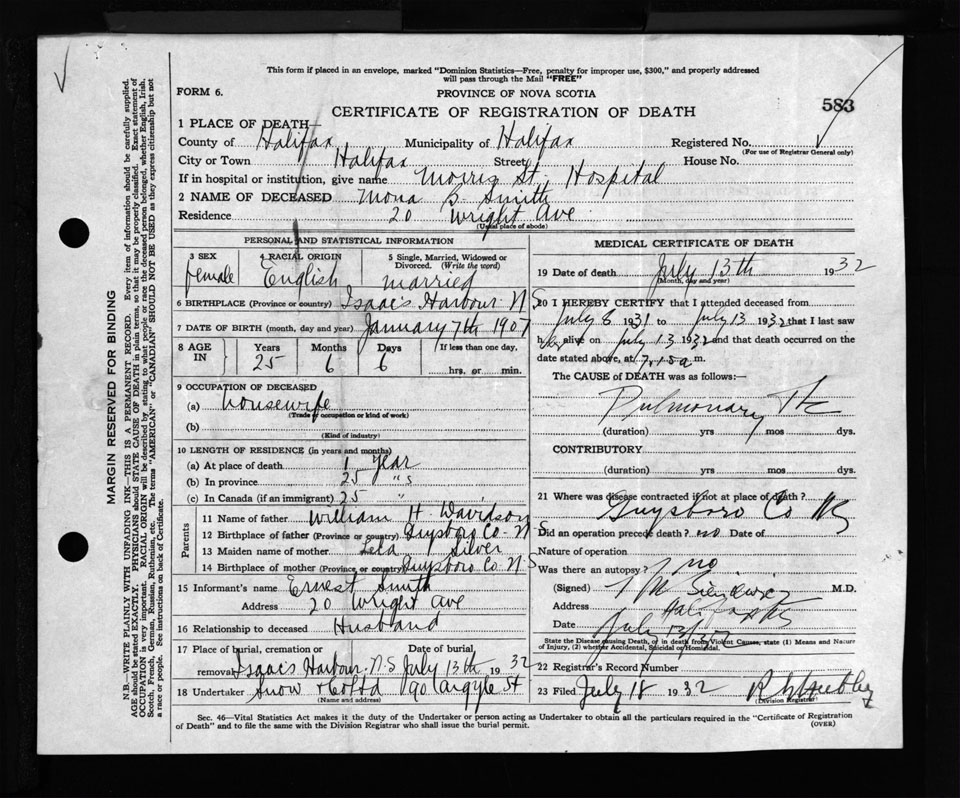 This form if placed in an envelope, marked "Dominion Statistics—Free, penalty for improper use, $300," and properly addressed
will pass through the Mail "FREE"
FORM 6.
PROVINCE OF NOVA SCOTIA
583
CERTIFICATE OF REGISTRATION OF DEATH
1 PLACE OF DEATH—
County of Halifax Municipality of Halifax Registered No.
(For use of Registrar General only)
City or Town Halifax Street House No.
If in hospital or institution, give name Morris St. Hospital
2 NAME OF DECEASED Mona B. Smith
Residence 20 Wright Ave
(Usual place of abode)
PERSONAL AND STATISTICAL INFORMATION
3 SEX female
4 RACIAL ORIGIN English
5 Single, Married, Widowed or Divorced. (Write the word) married
6 BIRTHPLACE (Province or country) Isaac's Harbour N S
7 DATE OF BIRTH (month, day and year) January 7th 1907
8 AGE IN Years 25 Months 6 Days 6 If less than one day, hrs. or min.
9 OCCUPATION OF DECEASED
(a) housewife
(Trade or occupation or kind of work)
(b)
(Kind of industry)
10 LENGTH OF RESIDENCE (in years and months)
(a) At place of death 1 year
(b) In province 25 "s
(c) In Canada (if an immigrant) 25 "
Parents
11 Name of father William H. Davidson
12 Birthplace of father (Province or country) Guysboro Co N S
13 Maiden name of mother Lela Silver
14 Birthplace of mother (Province or country) Guysboro Co N S
15 Informant's name Ernest Smith
Address 20 Wright Ave
16 Relationship to deceased Husband
17 Place of burial, cremation or removal Isaac's Harbour N.S Date of burial July 13th 1932
18 Undertaker Snow & Co Ltd 90 Argyle St
(Name and address)
MEDICAL CERTIFICATE OF DEATH
19 Date of death July 13th 1932
(Month, day and year)
20 I HEREBY CERTIFY that I attended deceased from
July 8 1931 to July 13 1932 that I last saw
her alive on July 13 1932 and that death occurred on the
date stated above, at 7.15 a m.
The CAUSE of DEATH was as follows:—
Pulmonary Tbc
(duration) yrs mos dys.
CONTRIBUTORY
(duration) yrs mos dys.
21 Where was disease contracted if not at place of death? Guysboro Co NS
Did an operation precede death? no Date of
Nature of operation
Was there an autopsy? no
(Signed) M.D.
Address
Date July
State the Disease causing Death, or in death from Violent Causes, state (1) Means and Nature
of Injury, (2) whether Accidental, Suicidal or Homicidal.
22 Registrar's Record Number
23 Filed July 18 1932
(Division Registrar)
Sec. 46—Vital Statistics Act makes it the duty of the Undertaker or person acting as Undertaker to obtain all the particulars required in the "Certificate of Registration
of Death" and to file the same with the Division Registrar who shall issue the burial permit. (OVER)
MARGIN RESERVED FOR BINDING
N.B.—WRITE PLAINLY WITH UNFADING INK—THIS IS A PERMANENT RECORD. Every item of information should be carefully supplied.
AGE should be stated EXACTLY. PHYSICIANS should STATE CAUSE OF DEATH in plain terms, so that it may be properly classified. Exact statement of
OCCUPATION is very important. RACIAL ORIGIN will be described by stating to what people or race the deceased person belonged, whether English, Irish,
Scotch, French, German, Russian, Ruthenian, etc. The terms "AMERICAN" or "CANADIAN" SHOULD NOT BE USED as they express citizenship but not
a race or people. See instructions on back of Certificate.